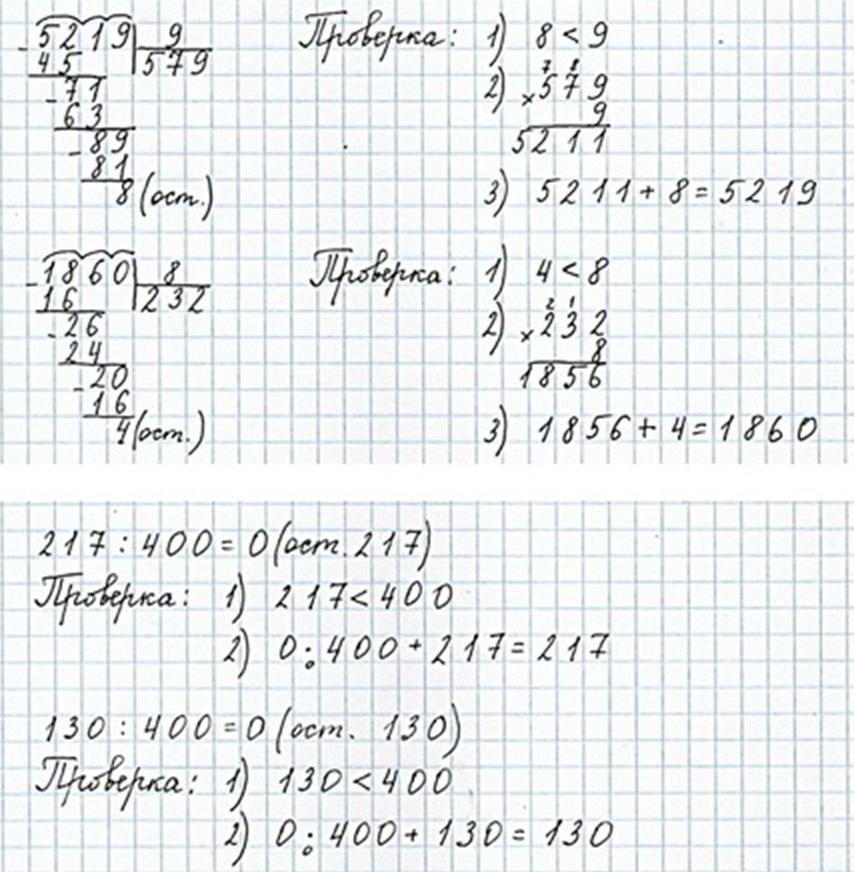 5219 | 9 Проверка: 1) 8 < 9
45 579
71 2) 7 8
63 × 579
89 9
81 5211
8 (ост.) 3) 5211 + 8 = 5219
1860 | 8 Проверка: 1) 4 < 8
16 232
26 2) 2 1
24 × 232
20 8
16 1856
4 (ост.) 3) 1856 + 4 = 1860
217 : 400 = 0 (ост. 217)
Проверка: 1) 217 < 400
2) 0 : 400 + 217 = 217
130 : 400 = 0 (ост. 130)
Проверка: 1) 130 < 400
2) 0 : 400 + 130 = 130